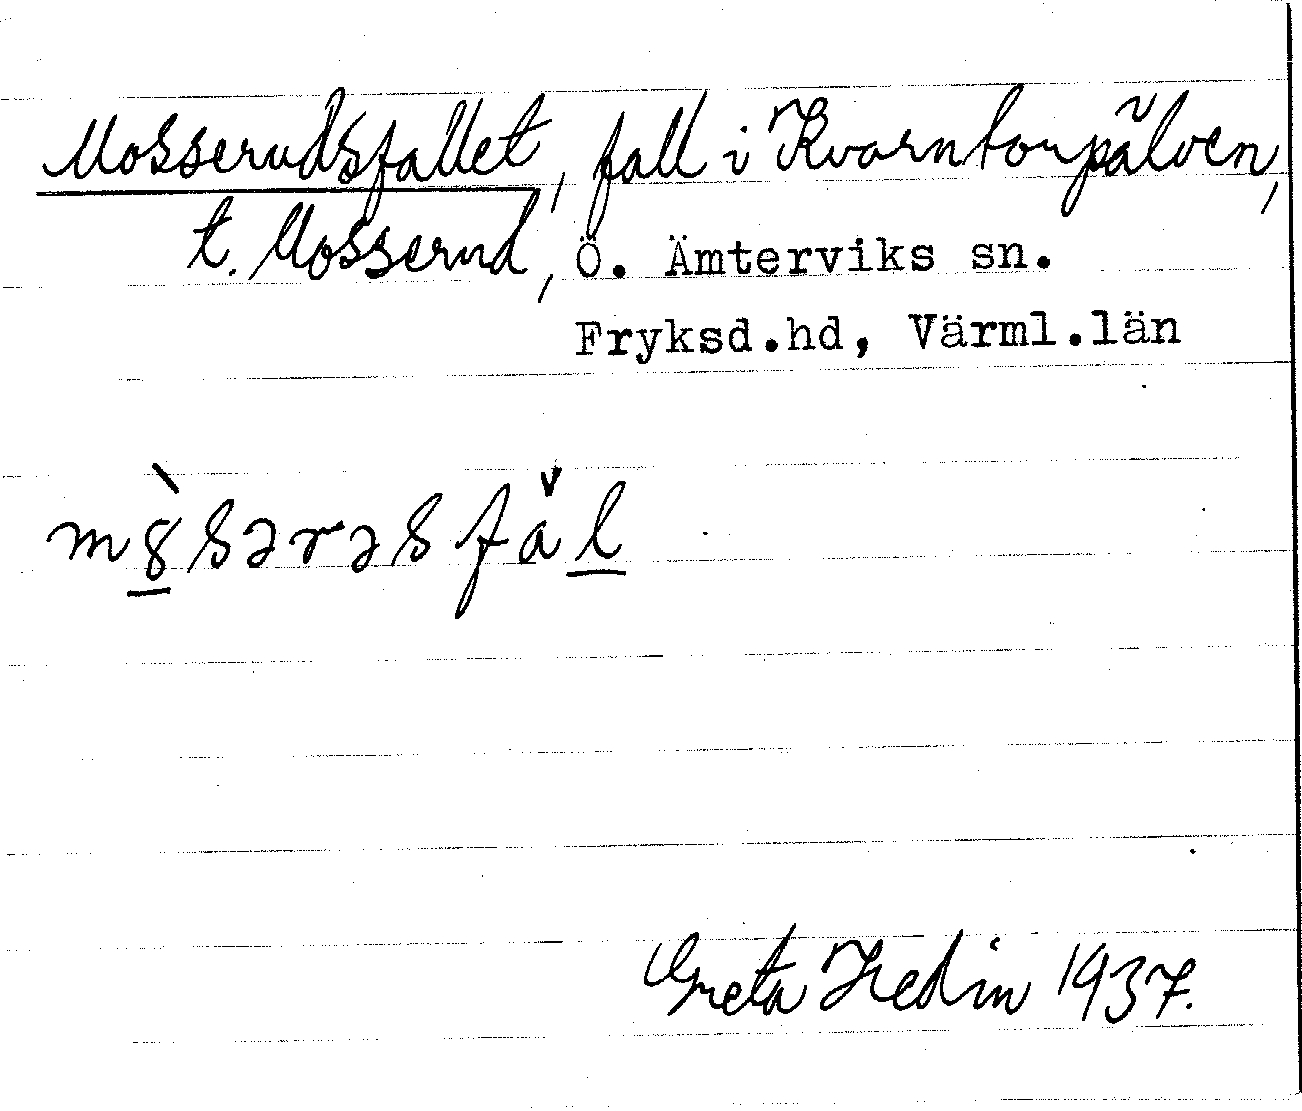 Mosserudsfallet, fall i Kvarntorpälven,
t. Mosserud, Ö. Ämterviks sn.
Fryksd.hd, Värml.län
m8̱̀sərəsfǎḻ
Greta Hedin 1937.